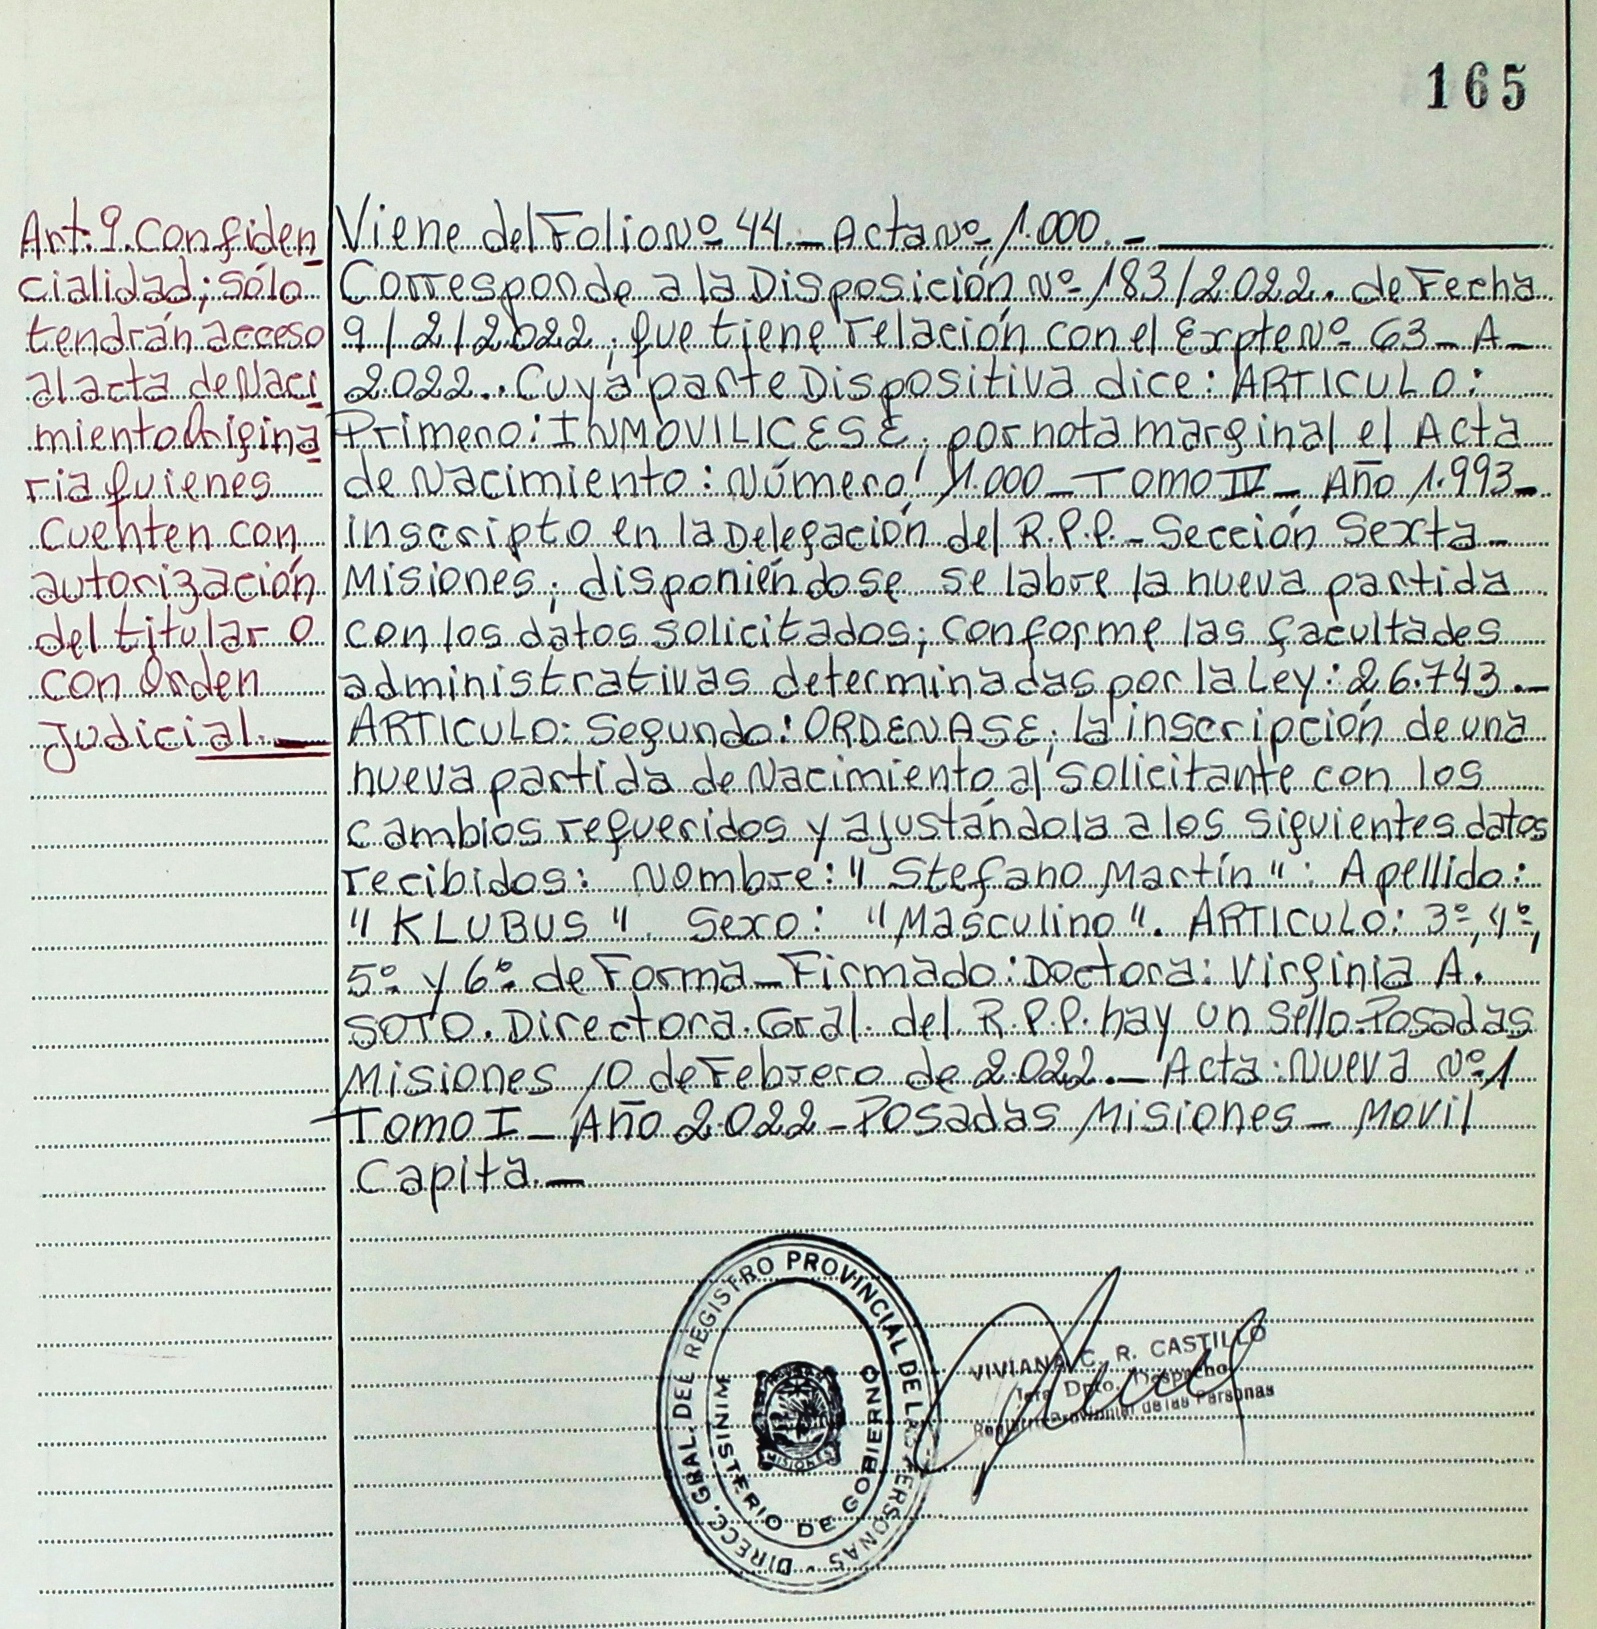 165
Art. 9. Confiden
cialidad; sólo
tendrán acceso
al acta de Naci
miento Origina
ria quienes
cuenten con
autorización
del titular o
con Orden
Judicial.—
Viene del Folio Nº 44.— Acta Nº 1.000.—
Corresponde a la Disposición Nº 183/2.022. de Fecha
9/2/2.022, que tiene relación con el Expte Nº 63— A—
2.022.. Cuya parte Dispositiva dice: ARTICULO:
Primero: INMOVILICESE, por nota marginal el Acta
de Nacimiento: Número 1.000— Tomo IV— Año 1.993—
inscripto en la Delegación del R.P.P.— Sección Sexta—
Misiones, disponiéndose se labre la nueva partida
con los datos solicitados; conforme las facultades
administrativas determinadas por la Ley: 26.743.—
ARTICULO: Segundo: ORDENASE, la inscripción de una
nueva partida de Nacimiento al solicitante con los
cambios requeridos y ajustándola a los siguientes datos
recibidos: Nombre: "Stefano Martín": Apellido:
"KLUBUS". Sexo: "Masculino". ARTICULO: 3º, 4º,
5º y 6º de Forma— Firmado: Doctora: Virginia A.
SOTO. Directora Gral. del R.P.P. hay un Sello.Posadas
Misiones 10 de Febrero de 2.022.— Acta: Nueva Nº 1
Tomo I— Año 2.022— Posadas Misiones— Movil
Capita.—
DIRECC. GRAL. DEL REGISTRO PROVINCIAL DE LAS PERSONAS -
MINISTERIO DE GOBIERNO
MISIONES
VIVIANA C. R. CASTILLO
Jefa Dpto. Despacho
Registro Provincial de las Personas